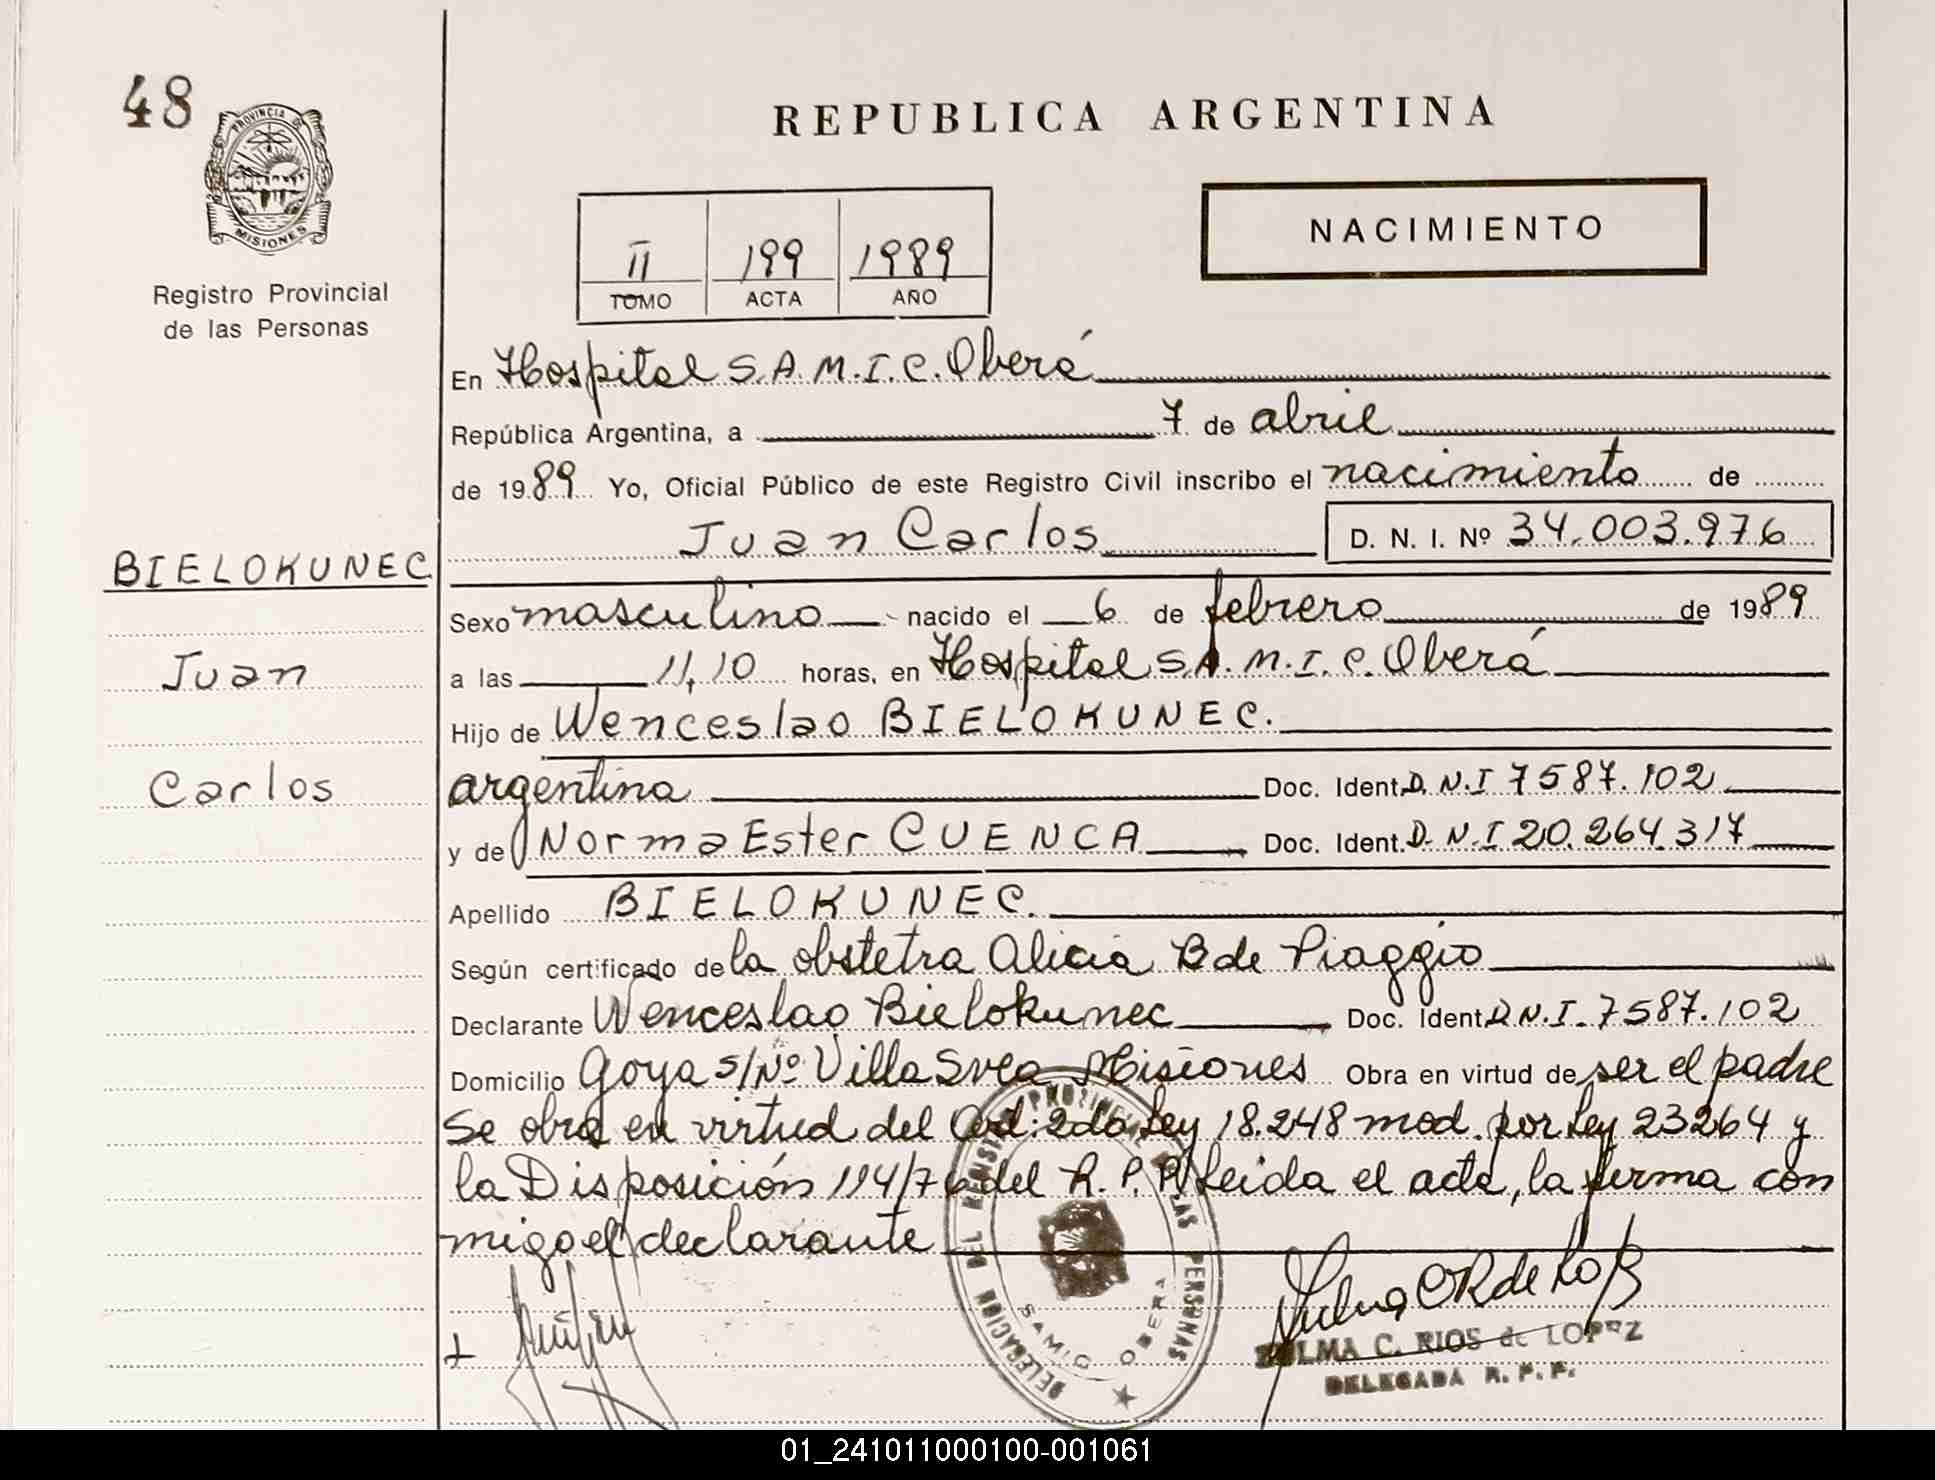 48
PROVINCIA D
MISIONES
Registro Provincial
de las Personas
REPUBLICA ARGENTINA
II 199 1989
TOMO ACTA AÑO
NACIMIENTO
En Hospital S.A.M.I.C. Oberá
República Argentina, a 7 de abril
de 1989 Yo, Oficial Público de este Registro Civil inscribo el nacimiento de
Juan Carlos D. N. I. Nº 34.003.976
BIELOKUNEC
Sexo masculino nacido el 6 de febrero de 1989
Juan
a las 11,10 horas, en Hospital S.A.M.I.C. Oberá
Hijo de Wenceslao BIELOKUNEC.
Carlos
argentina Doc. Ident. D.N.I 7587.102
y de Norma Ester CUENCA Doc. Ident. D.N.I 20.264.317
Apellido BIELOKUNEC.
Según certificado de la obstetra Alicia B de Piaggio
Declarante Wenceslao Bielokunec Doc. Ident D.N.I. 7587.102
Domicilio Goya s/Nº Villa Svea Misiones Obra en virtud de ser el padre
Se obra en virtud del Ley 18.248 mod. por Ley 23264 y
la Disposición 114/76 del R.P.P. Leida el acta, la firma con
migo el declarante
DELEGACION DEL REGISTRO PROVINCIAL DE LAS PERSONAS
SAMIC OBERA
ZULMA C. RIOS de LOPEZ
DELEGADA R. P. P.
01_241011000100-001061